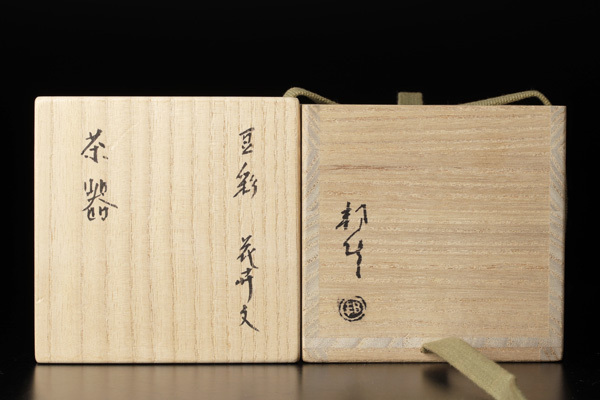 豆彩 花卉文
茶器
邦